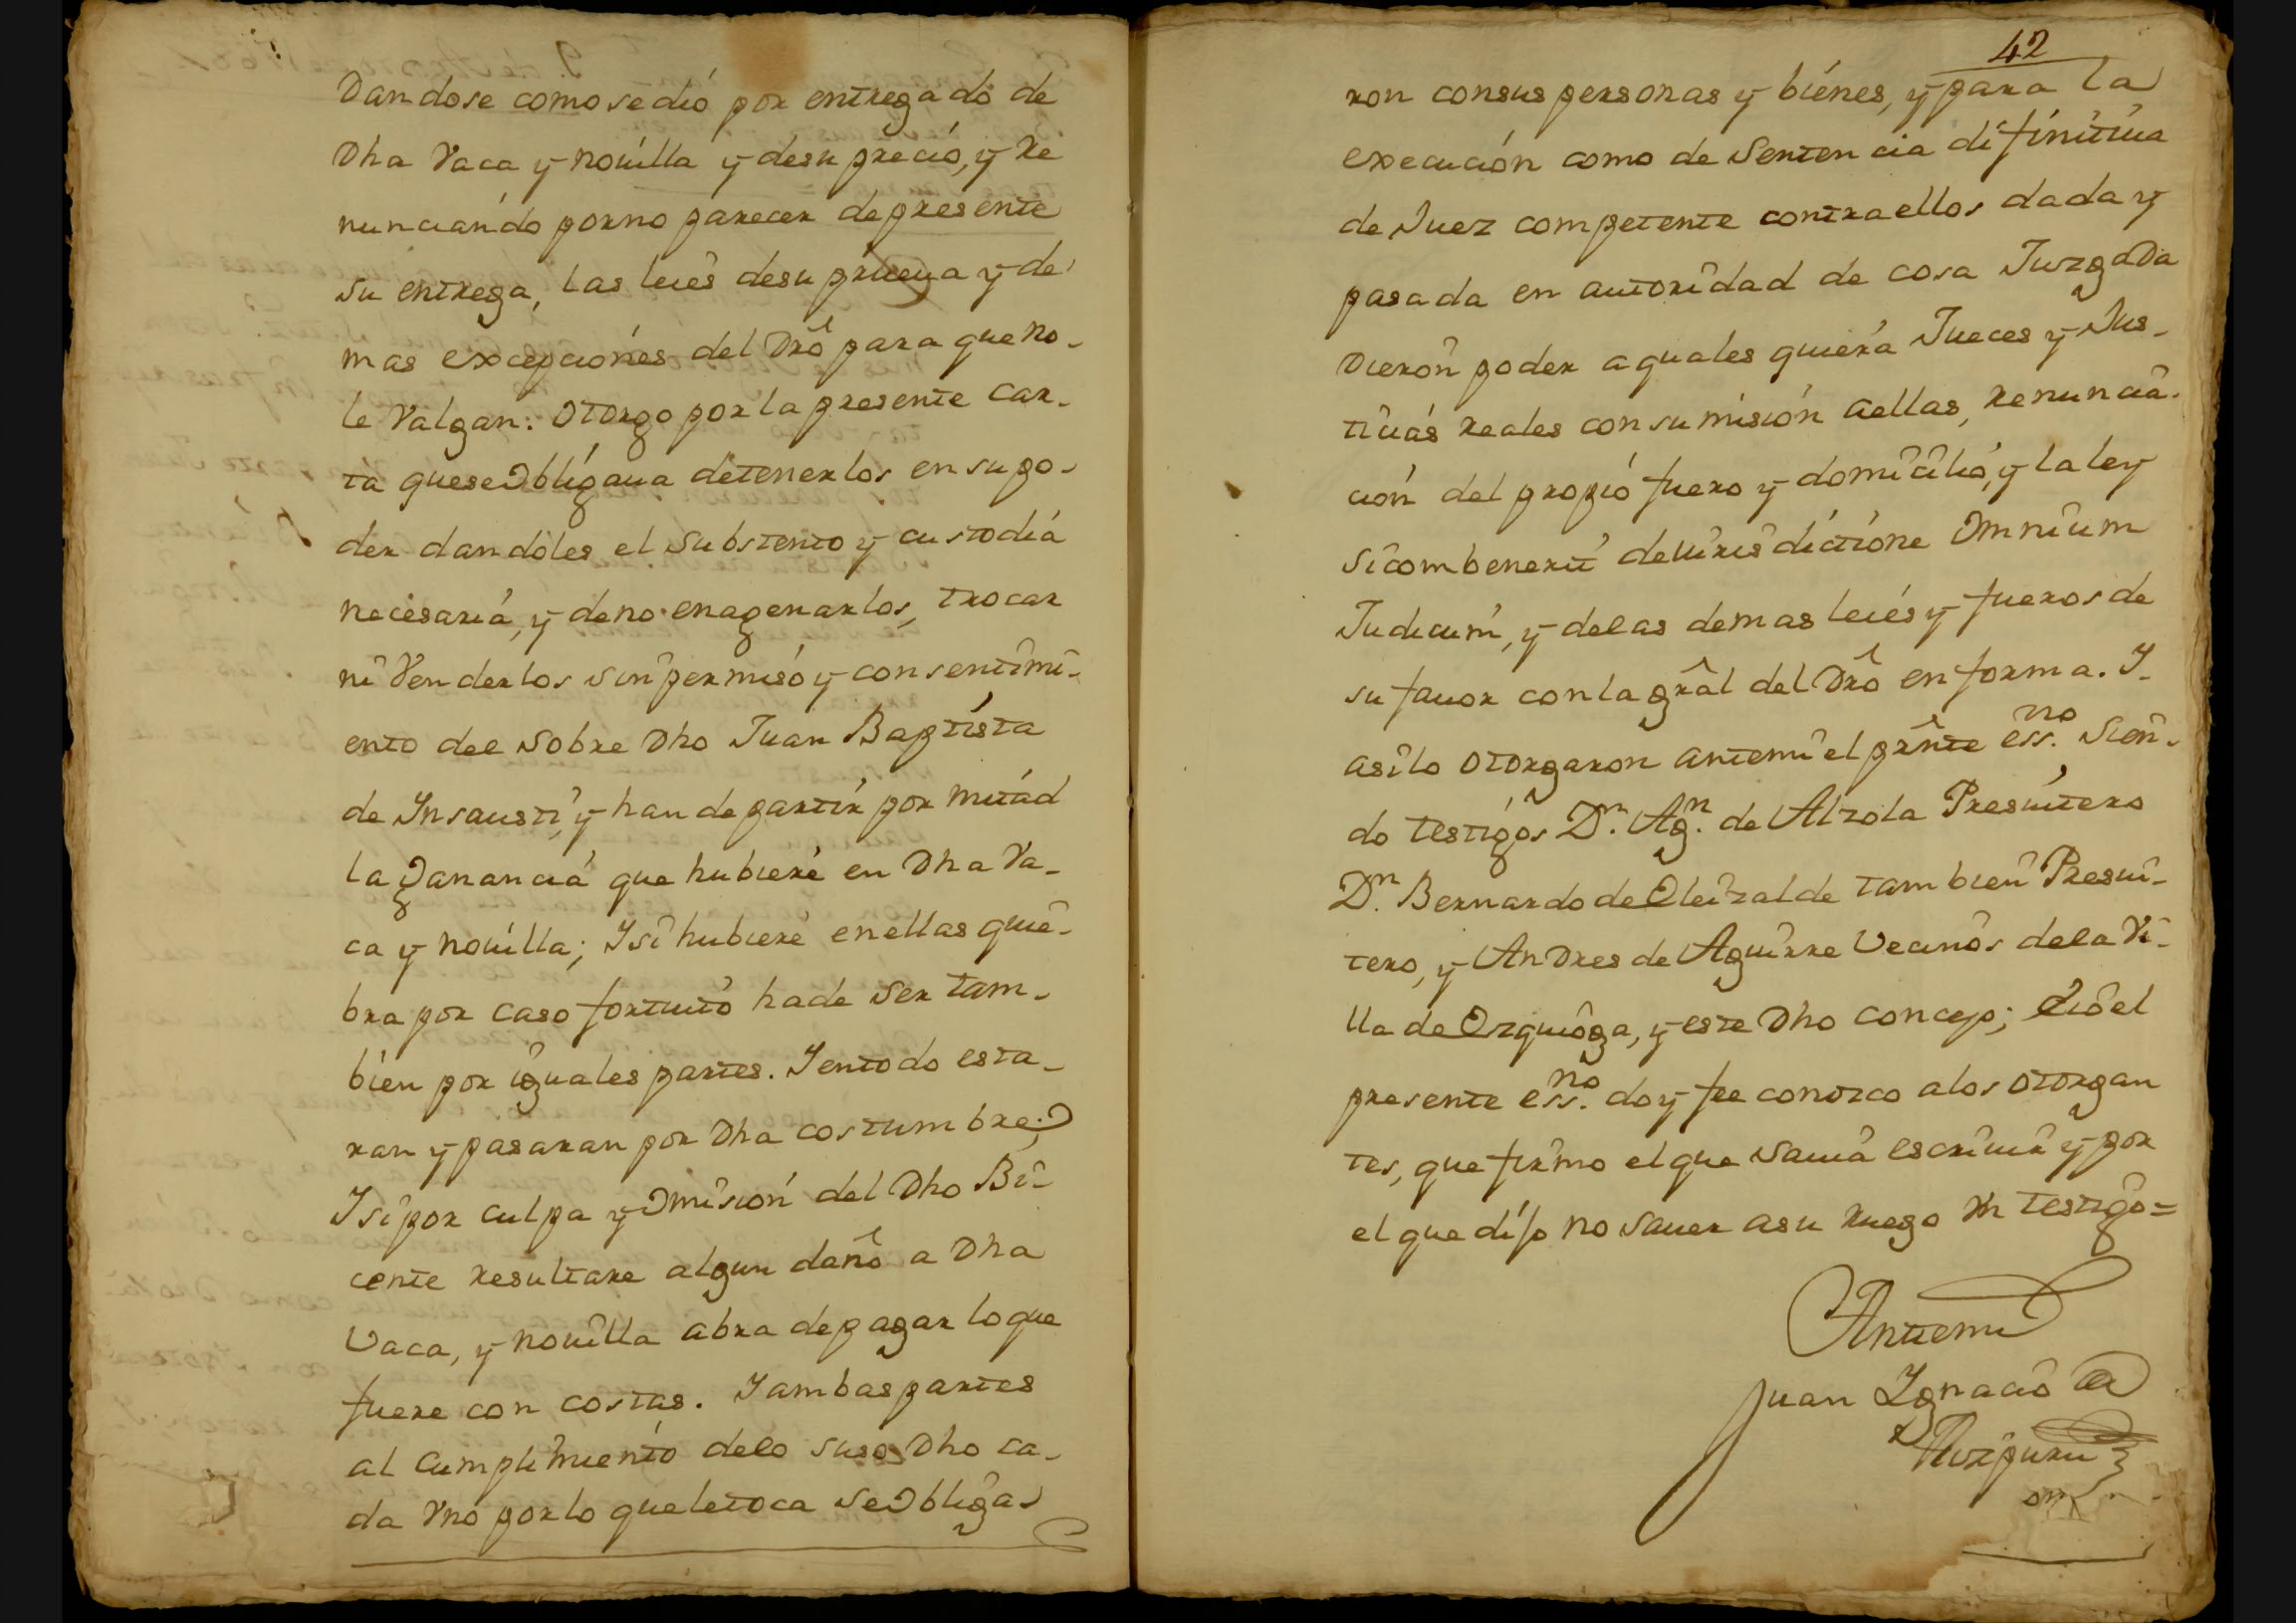 Dandose como se dió por entregado de
Dha Vaca y novilla y desu precio, y Re
nunciando porno parecer depresente
su entrega, las leies desu prueua y de
mas excepciones del Dro para que no-
le Valgan: Otorgo por la presente Car-
ta queseobligaua detenerlos ensupo-
der dandoles el substento y custodia
necesaria, y deno enagenarlos, trocar
ni Venderlos sin permiso y consentimi-
ento del sobre Dho Juan Baptista
de Insausti, y han de partir por mitad
la ganancia que hubiere en Dha Va-
ca y novilla; Y si hubiere enellas quie-
bra por caso fortuito hade ser tam-
bien por iguales partes. Y entodo esta-
ran y pasaran por Dha costumbre;
Y si por culpa y Omision del Dho Bi-
cente resultare algun daño a Dha
Vaca, y novilla abra depagar loque
fuere con costas. Y ambas partes
al cumplimiento delo suso Dho ca-
da Vno porlo queletoca seobliga-
42
ron consus personas y bienes, y para la
execucion como de Sentencia difinitiua
de Juez competente contraellos dada y
pasada en autoridad de cosa Juzgada
Dieron poder aquales quiera Jueces y Jus-
ticias Reales consumision aellas, Renuncia-
cion del propio fuero y domicilio, y la ley
sicombenerit deJurisdictione Omnium
Judicum, y delas demas leies y fueros de
su fauor conla gral del Dro en forma. Y
asilo otorgaron antemi el prnte ess.no sien-
do testigos D.n Ag.n de Alzola Presuitero
D.n Bernardo de Oleizalde tambien Presui-
tero, y Andres de Aguirre Vecinos dela Vi-
lla de Ezquioga, y este Dho concejo; Eio el
presente ess.no doy fee conozco alos otorgan
tes, que firmo elque sauia escriuir y por
el que dijo no sauer asu Ruego Vn testigo=
Antemi
Juan Ignacio de